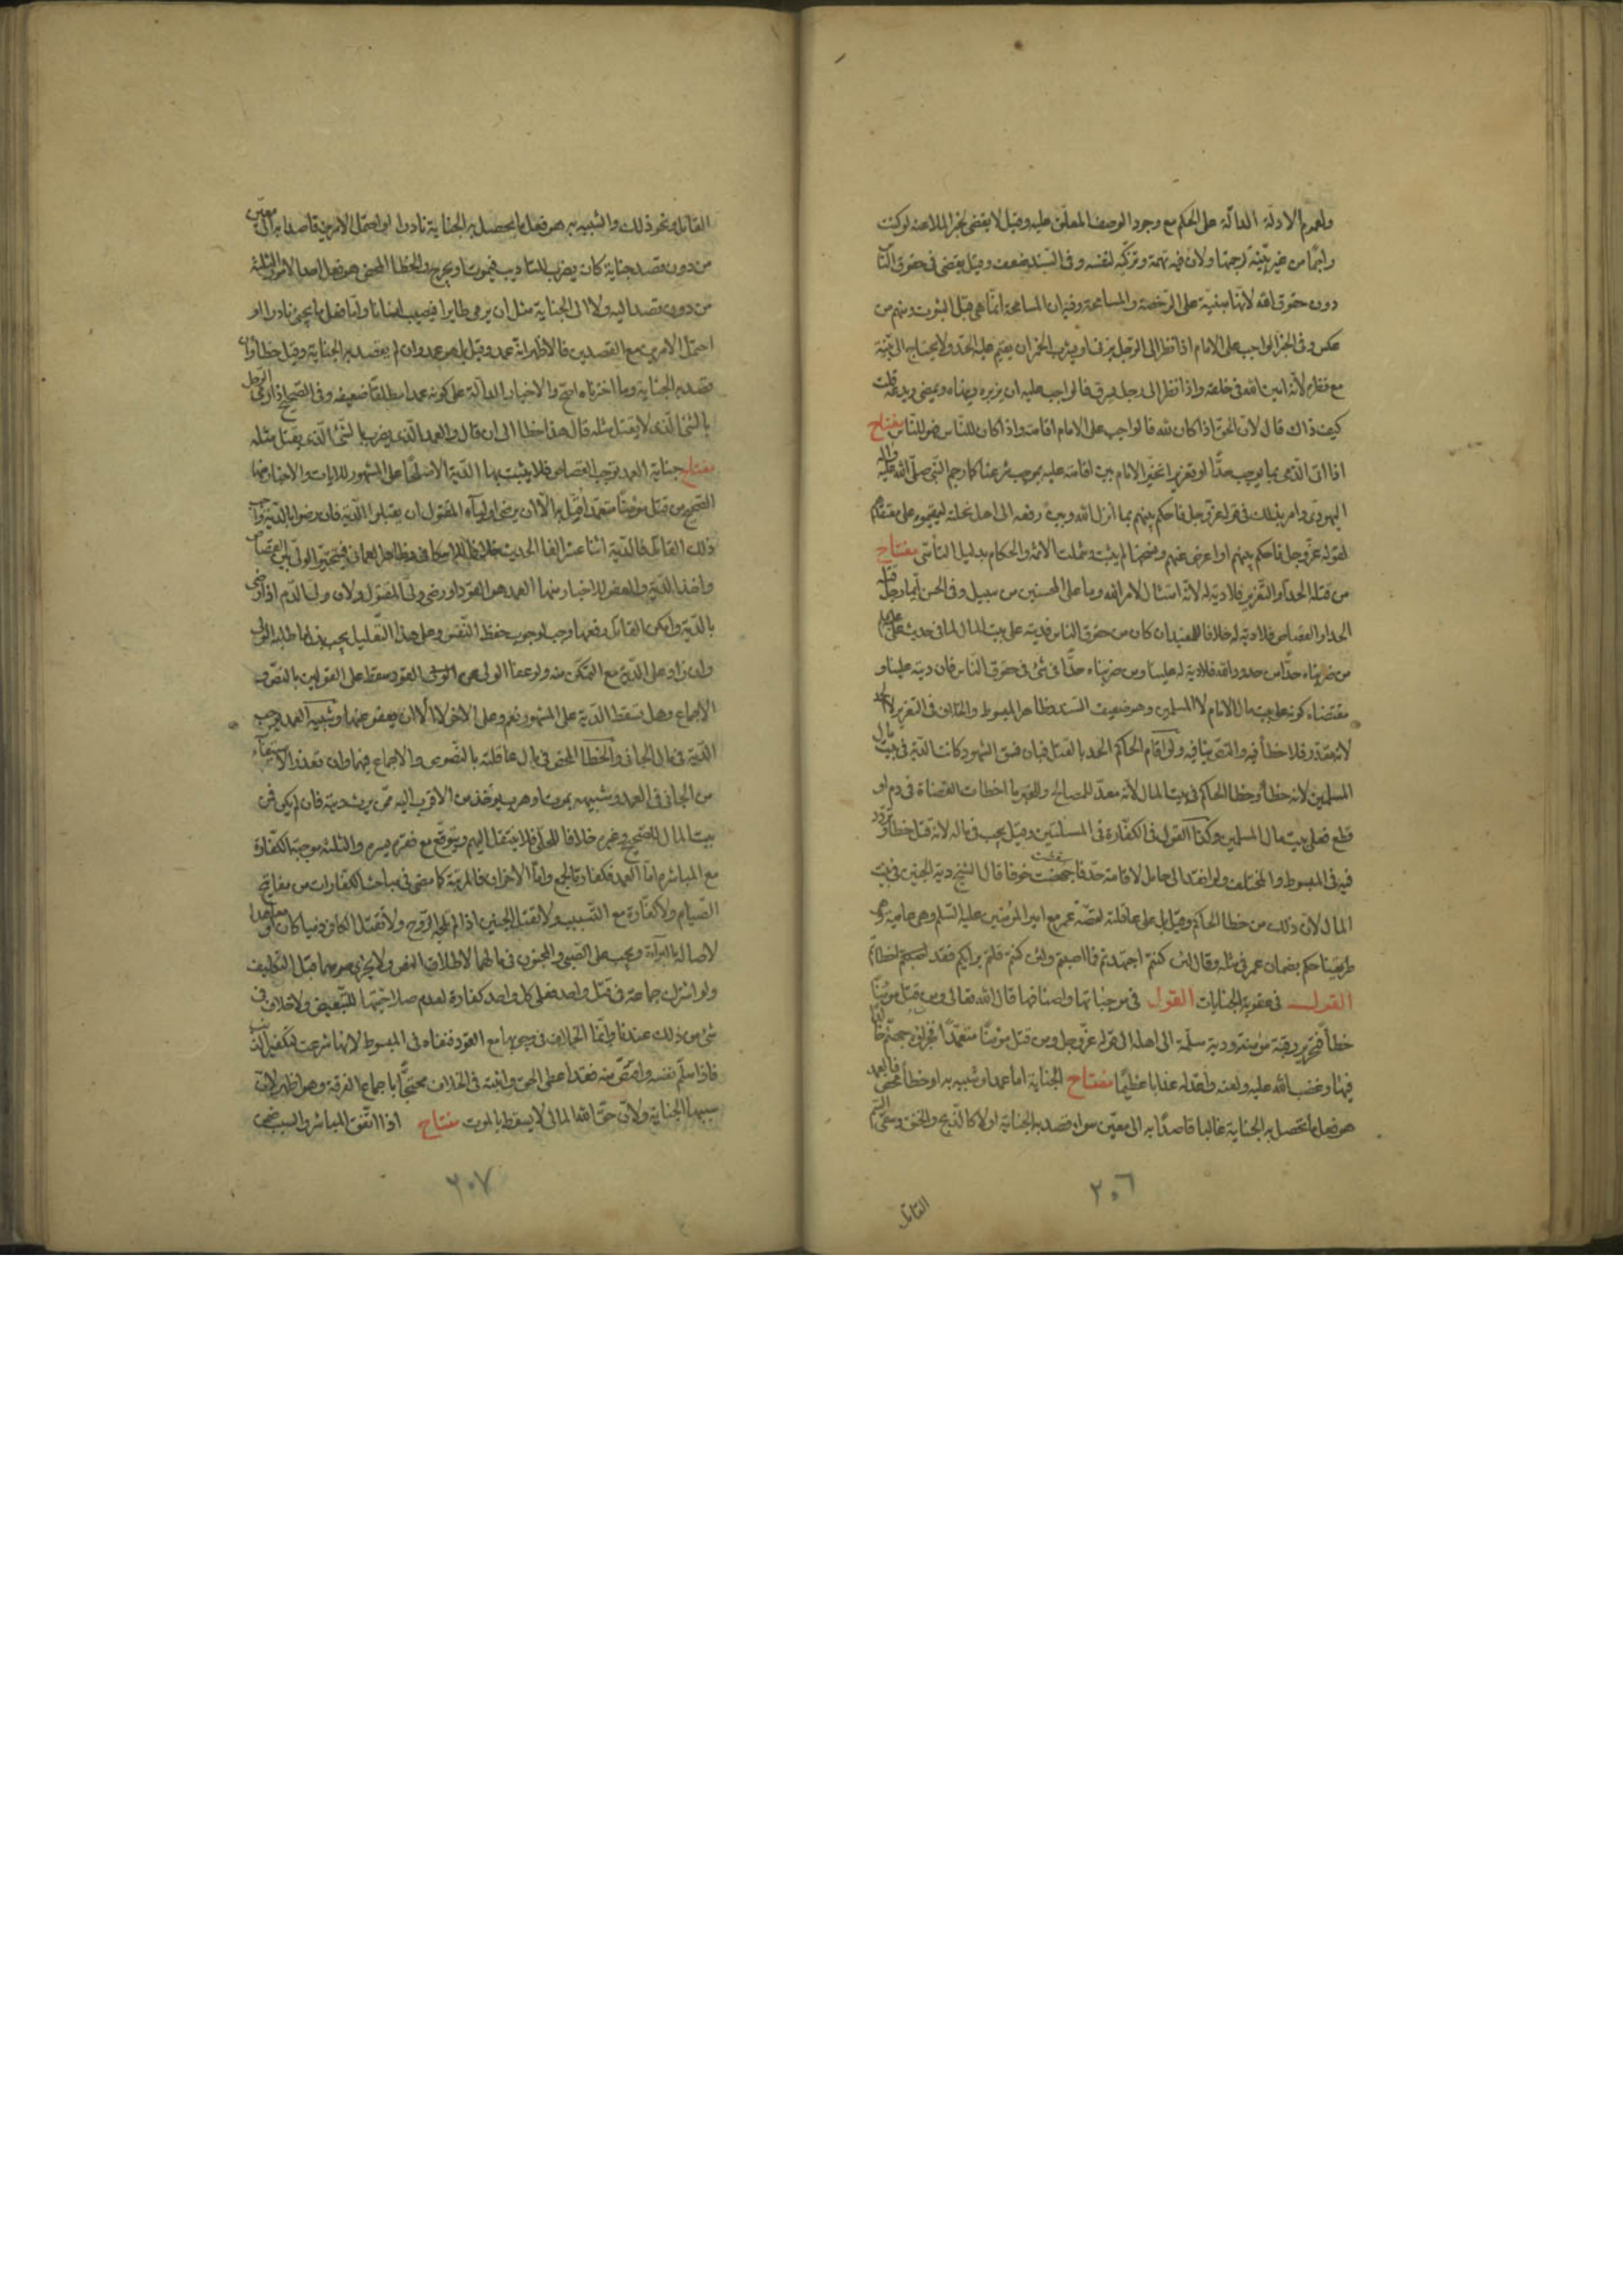 ولعموم الادلة الدالة على الحكم مع وجود الوصف المعلق عليه وقيل لا يقضى لخبر الملاعنة لو كنت
راجما من غير بينة لرجمتها ولان فيه تهمة وتزكية لنفسه وفى السند ضعف وقيل يقضى فى حقوق الناس
دون حقوق الله لانها مبنية على الرخصة والمسامحة وفيه ان المسامحة انما هى قبل الثبوت ومنهم من
عكس وفى الخبر الواجب على الامام اذا نظر الى الرجل يزنى او يشرب الخمر ان يقيم عليه الحد ولا يحتاج الى بينة
مع نظره لانه امين الله فى خلقه واذا نظر الى رجل يسرق فالواجب عليه ان يزبره وينهاه ويمضى ويدعه قلت
كيف ذاك قال لان الحق اذا كان لله فالواجب على الامام اقامته واذا كان للناس فهو للناس مفتاح
اذا اتى الذمى بما يوجب حدا او تعزيرا تخير الامام بين اقامته عليه بموجب شرعنا كما رجم النبى صلى الله عليه واله
اليهودى وامر بذلك فى قوله عز وجل فاحكم بينهم بما انزل الله وبين رفعه الى اهل نحلته ليقيموه على معتقدهم
لقوله عز وجل فاحكم بينهم او اعرض عنهم ونسخها لم يثبت وشملت الائمة والحكام بدليل التأسى مفتاح
من قتله الحد او التعزير فلا دية له لانه امتثال لامر الله وما على المحسنين من سبيل وفى الحسن ايما رجل قتله
الحد او القصاص فلا دية له خلافا للمفيد ان كان من حقوق الناس فديته على بيت المال لما فى حديث على
من ضربناه حدا من حدود الله فلا دية له علينا ومن ضربناه حدا فى شئ فى حقوق الناس فان ديته علينا و
مقتضاه كونه على بيت مال الامام لا المسلمين وهو ضعيف السند وظاهر المبسوط والخلاف فى التعزير
لانه مقدر فلا خطأ فيه والنص ينافيه ولو اقام الحاكم الحد بالقتل فبان فسق الشهود كانت الدية فى بيت مال
المسلمين لانه خطأ وخطا الحاكم فى بيت المال لانه معد للمصالح وللخبر ما اخطات القضاة فى دم او
قطع فعلى بيت مال المسلمين وكذا القول فى الكفارة فى المسئلتين وقيل يجب فى ماله لانه قتل خطأ وتردد
فيه فى المبسوط والمختلف ولو انفذ الى حامل لاقامة حد فاجهضت خوفا قال الشيخ دية الجنين فى بيت
المال لان ذلك من خطا الحاكم وقيل بل على عاقلته لقصة عمر مع امير المؤمنين عليه السلم وهى عامية
طريقنا حكم بضمان عمر فى مثله وقال لئن كنتم اجتهدتم فما اصبتم ولئن كنتم قلتم برأيكم فقد اخطأتم
القول فى عقوبة الجنايات القول فى موجباتها واصنافها قال الله تعالى ومن قتل مؤمنا
خطأ فتحرير رقبة مؤمنة ودية مسلمة الى اهله الى قوله عز وجل ومن قتل مؤمنا متعمدا فجزاؤه جهنم خالدا
فيها وغضب الله عليه ولعنه واعد له عذابا عظيما مفتاح الجناية اما عمد او شبيه به او خطأ محض فالعمد
هو فعل ما تحصل به الجناية غالبا قاصدا به الى معين سواء قصد به الجناية او لا كالذبح والخنق وسقى السم
٢٠٦
القاتل
القاتل ونحو ذلك والشبيه به هو فعل ما يحصل به الجناية نادرا او احتمل الامرين قاصدا به الى معين
من دون قصد جناية كان يضرب للتاديب فيموت او يجرح والخطا المحض هو فعل احد الامور الثلثة
من دون قصد اليه ولا الى الجناية مثل ان يرمى طايرا فيصيب انسانا واما فعل ما يجئ نادرا او
احتمل الامرين مع القصدين فالاظهر انه عمد وقيل بل هو عمد وان لم يقصد به الجناية وقيل خطأ وان
قصد به الجناية وما اخترناه اصح والاخبار الدالة على كونه عمدا مطلقا ضعيفة وفى الصحيح اذا رمى الرجل
بالشئ الذى لا يقتل مثله قال هذا خطا الى ان قال والعمد الذى يضرب بالشئ الذى يقتل مثله
مفتاح جناية العمد توجب القصاص فلا يثبت بها الدية الا صلحا على المشهور للايات والاخبار منها
الصحيح من قتل مؤمنا متعمدا قيد به الا ان يرضى اولياء المقتول ان يقبلوا الدية فان رضوا بالدية واحب
ذلك القاتل فالدية اثنا عشر الفا الحديث خلافا للاسكافى وظاهر العمانى فيتخير الولى بين القصاص
واخذ الدية ولبعض الاخبار منها العمد هو القود او رضى ولى المقتول ولان ولى الدم اذا رضى
بالدية وامكن القاتل دفعها وجب لوجوب حفظ النفس وعلى هذا التعليل يجب بذل ما طلبه الولى
وان زاد على الدية مع التمكن منه ولو عفا الولى عن القود سقط على القولين بالنص و
الاجماع وهل تسقط الدية على المشهور نعم وعلى الاخر لا الا ان يعفو عنها وشبيه العمد يوجب
الدية فى مال الجانى والخطا المحض فى مال عاقلته بالنصوص والاجماع فيهما وان تعذر الاستيفاء
من الجانى فى العمد وشبيهه بموت او هرب يؤخذ من الاقرب اليه ممن يرث ديته فان لم يكن فمن
بيت المال للصحيح وغيره خلافا للحلى فلا ينتقل اليهم ويتوقع مع فقره يسره والثلثة موجبة الكفارة
مع المباشرة اما العمد فكفارته الجمع واما الاخران فالمرتبة كما مضى فى مباحث الكفارات من مفاتيح
الصيام ولا كفارة مع التسبيب ولا بقتل الجنين اذا لم تلجه الروح ولا بقتل الكافر ذميا كان او معاهدا
لاصالة البراءة ويجب على الصبى والمجنون فى مالهما لاطلاق النص ولا يجزى صومهما قبل التكليف
ولو اشترك جماعة فى قتل واحد فعلى كل واحد كفارة لعدم صلاحيتها للتبعيض ولا خلاف فى
شئ من ذلك عندنا وانما الخلاف فى وجوبها مع القود فنفاه فى المبسوط لانها شرعت لتكفير الذنب
فاذا سلم نفسه واقتص منه فقد اعطى الحق واثبته فى الخلاف محتجا باجماع الفرقة وهو اظهر لان
سببها الجناية ولان حق الله المالى لا يسقط بالموت مفتاح اذا اتفق المباشر والسبب ضمن
٢٠٧